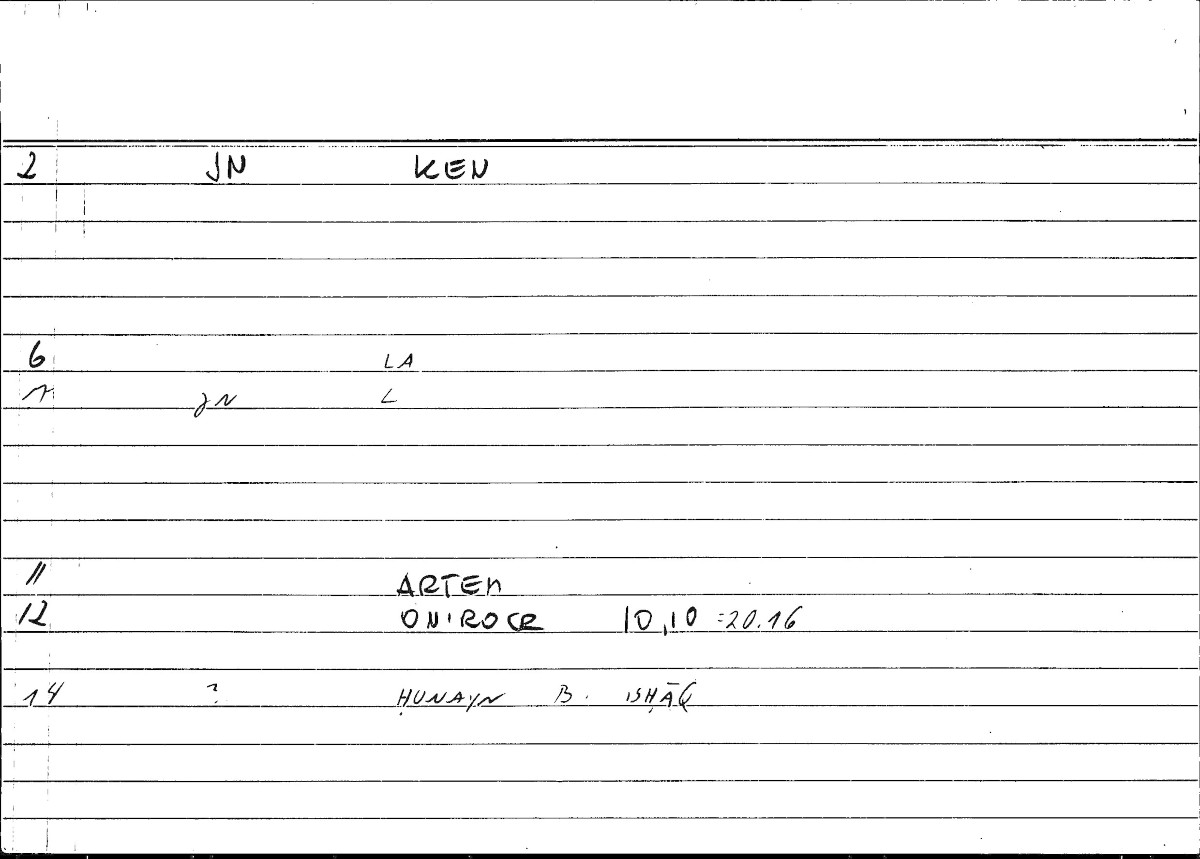 2 JN KEN
6 LA
1 JN L
11 ARTEM
12 ONIROCR 10,10 =20.16
14 ? ḤUNAYN B. ISḤĀQ